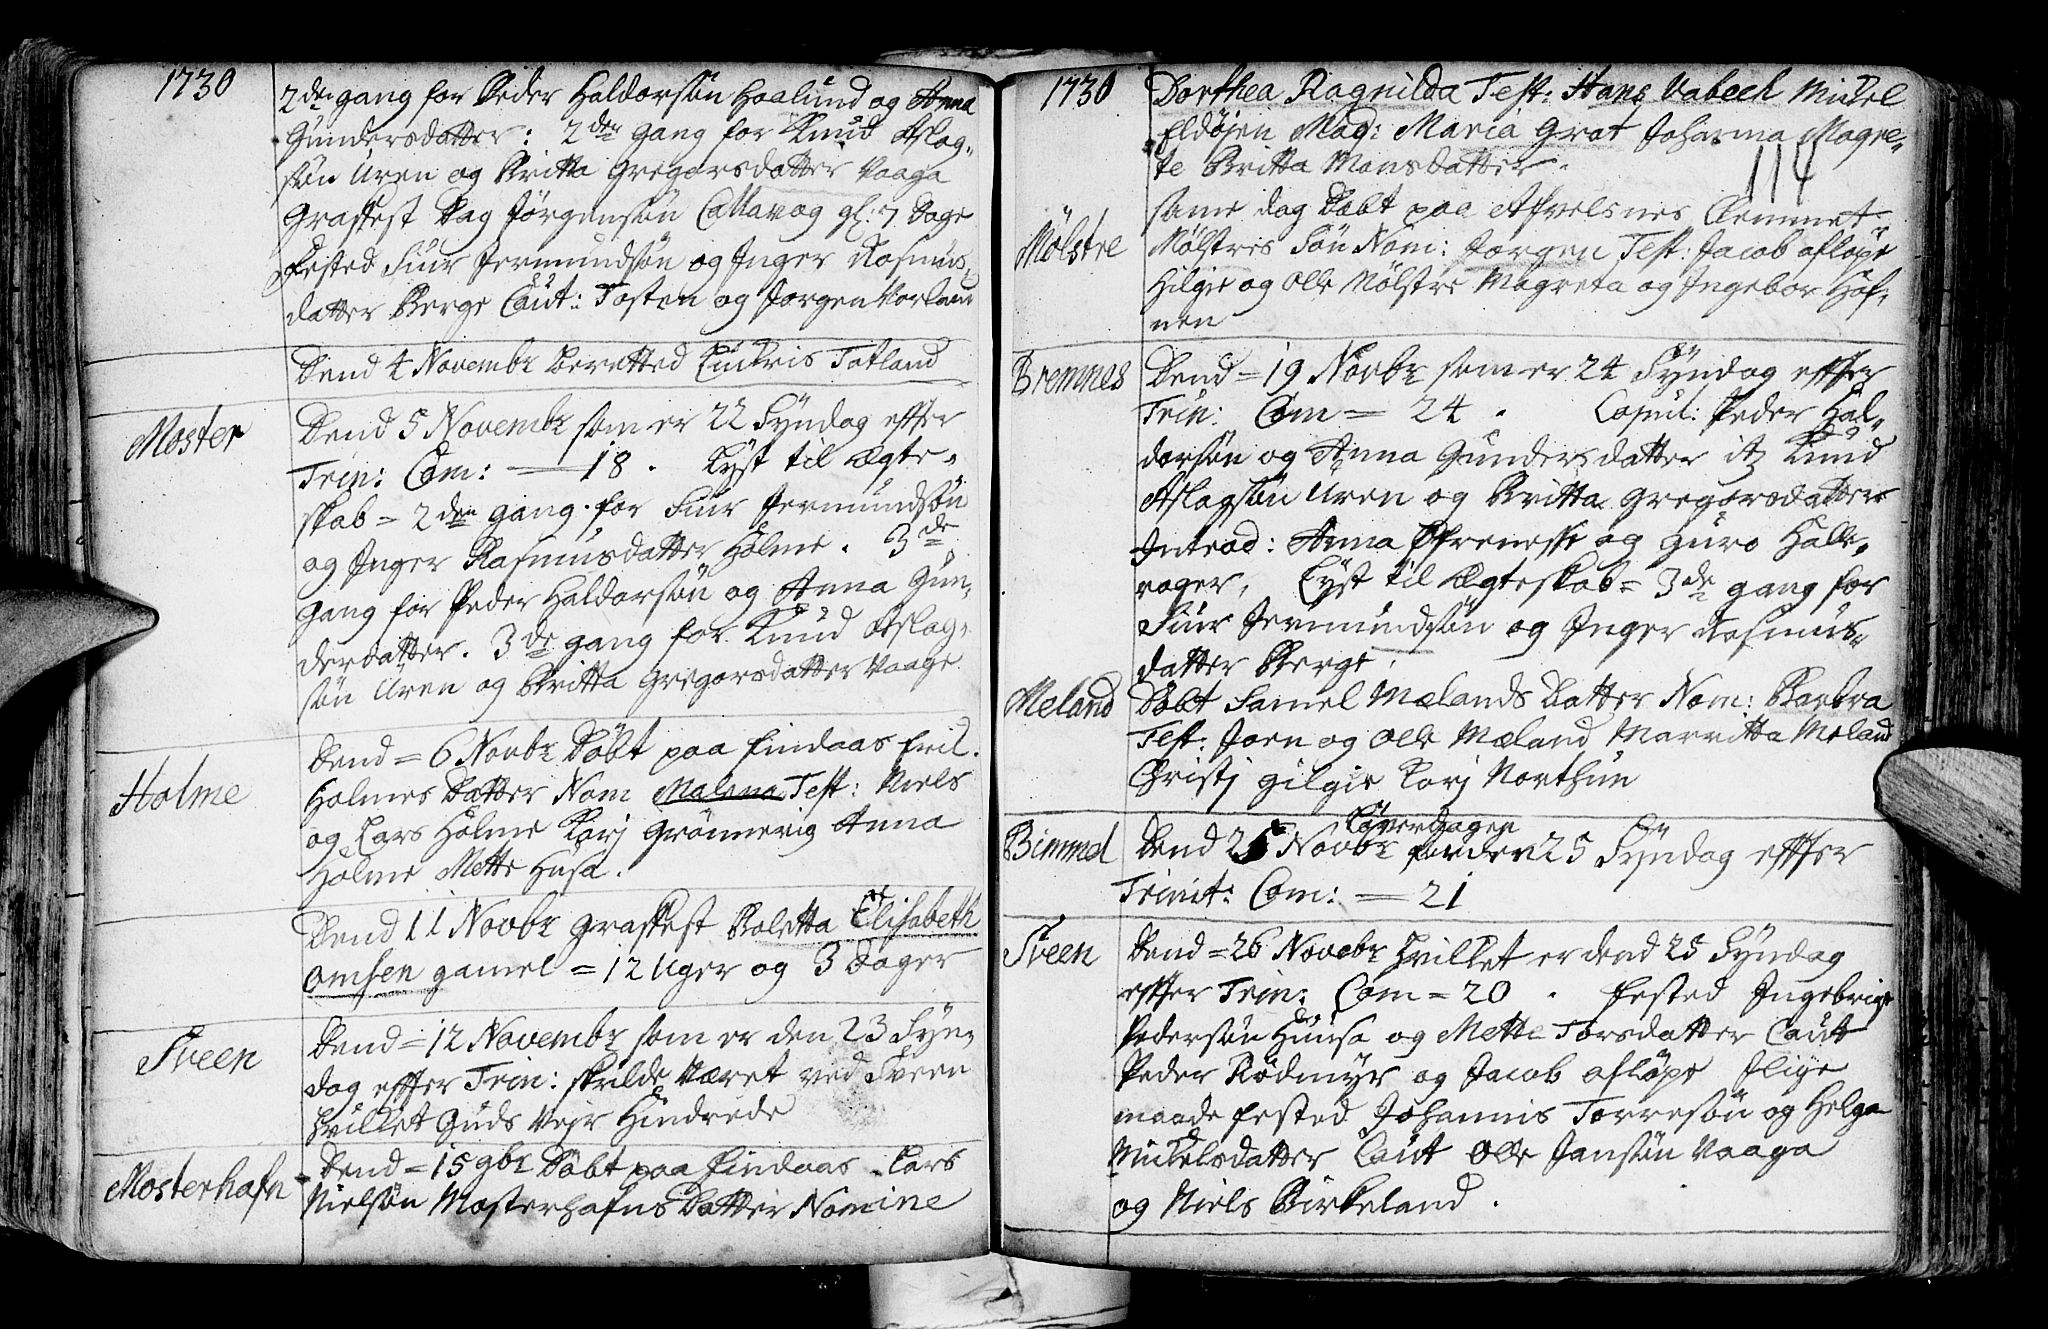 1730
2den gang for Peder Haldorsön Haalund og Anna
Gundersdatter: 2den gang for Knud Aslag-
sön Uren og Britta Gregorsdatter Vaaga
Graffest Dag Jörgensön Callavog gl: 7 Dage
Fested Siur Jermundsön og Inger Rasmus-
datter Berge Caut: Tosten og Jorgen Vorland
Dend 4 Novembr beretted Lidtris Totland
Moster
Dend 5 Novembr som er 22 Syndag effter
Trin: Com: — 18. Lyst til Ægte-
skab = 2den gang for Siur Jermundsön
og Inger Rasmusdatter Holme. 3de
gang for Peder Haldorsön og Anna Gun-
derdatter. 3de gang for Knud Aslag-
sön Uren og Britta Gregorsdatter Vaage
Holme
Dend = 6 Novbr Döbt paa Findaas Eril.
Holmes Datter Nom Malena Test: Niels
og Lars Holme Karj Grönnevig Anna
Holme Mette Husa.
Dend 11 Novbr Graffest Boletta Elisabeth
omsen gamel = 12 Uger og 3 Dager
Sveen
Dend = 12 Novembr som er den 23 Syn-
dag effter Trin: skulde Været ved Sveen
hvilket Guds Vejr Hindrede
Mosterhafn
Dend = 15 9br Döbt paa Findaas Lars
Nielsön Mosterhafns Datter Nomine
1730
Dorthea Ragnilda Test: Hans Vabeel Mickel
Eldøjen Mad: Maria Grot Johanna Magre-
te Britta Monsdatter.
114
Mölstre
same dag Döbt paa Afvelsnes Clemmet
Mölstres Sön Nom: Jorgen Test: Jacob Afløpe
Hilgie og Olle Mölstre Magreta og Ingebor Haf-
nen
Bremnes
Dend = 19 Novbr som er 24 Syndag effter
Trin: Com = 24. Copul: Peder Hal-
dorsön og Anna Gundersdatter it Knud
Aslagsön Uren og Britta Gregorsdatter
Introd: Anna Øfrenesse og Guro Halle-
rager, Lyst til Ægteskab = 3de gang for
Siur Jermundsön og Inger Rasmus-
datter Berge.
Meland
Döbt Samel Mælands Datter Nom: Barbra
Test: Joen og Olle Mæland Marritta Meland
Christj Gilgie Karj Northun
Bimmel
Löverdagen
Dend 25 Novbr for den 25 Syndag effter
Trinit: Com: = 21
Sveen
Dend = 26 Novebr hvilket er dend 25 Syndag
effter Trin: Com = 20. Fested Ingebrigt
Pedersön Huusa og Mette Torsdatter Caut
Peder Rödmyr og Jacob Afløpe Ilige
maade fested Johannis Torresön og Helga
Mickelsdatter Caut Olle Jansön Vaaga
og Niels Birkeland.